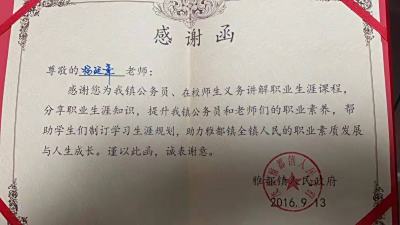 感谢函
尊敬的 老师:
感谢您为我镇公务员、在校师生义务讲解职业生涯课程,
分享职业生涯知识,提升我镇公务员和老师们的职业素养,帮
助学生们制订学习生涯规划,助力雅都镇全镇人民的职业素质发展
与人生成长。谨以此函,诚表谢意。
雅都镇人民政府
2016.9.13